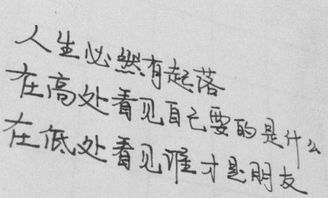 人生必然有起落
在高处看见自己要的是什么
在低处看见谁才是朋友